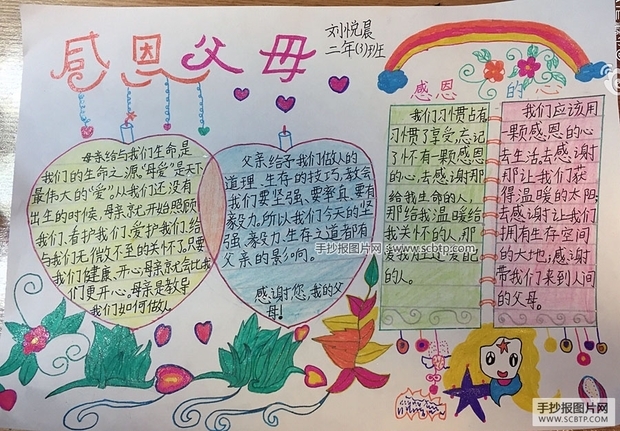 感恩父母
刘悦晨
二年(3)班
母亲给与我们生命,是
我们的生命之源,“母爱”是天下
最伟大的“爱”。从我们还没有
出生的时候,母亲就开始照顾
我们、看护我们、爱护我们,给
与我们无微不至的关怀了。只要
我们健康、开心母亲就会比我
们更开心。母亲是教导
我们如何做人。
父亲给予我们做人的
道理、生存的技巧,教会
我们要坚强、要率真、要有
毅力。所以我们今天的坚
强、毅力、生存之道者都有
父亲的影响。
感谢您,我的父
母!
感恩的心
我们习惯占有
习惯了享受,忘记
了怀有一颗感恩
的心,去感谢那
给我生命的人,
那给我温暖给
我关怀的人,那
爱我
的人。
我们应该用
一颗感恩的心
去生活,去感谢
那让我们获
得温暖的太阳;
去感谢让我们
拥有生存空间
的大地;感谢
带我们来到人间
的父母。
手抄报图片网
www.scbtp.com
手抄报图片网
WWW.SCBTP.COM